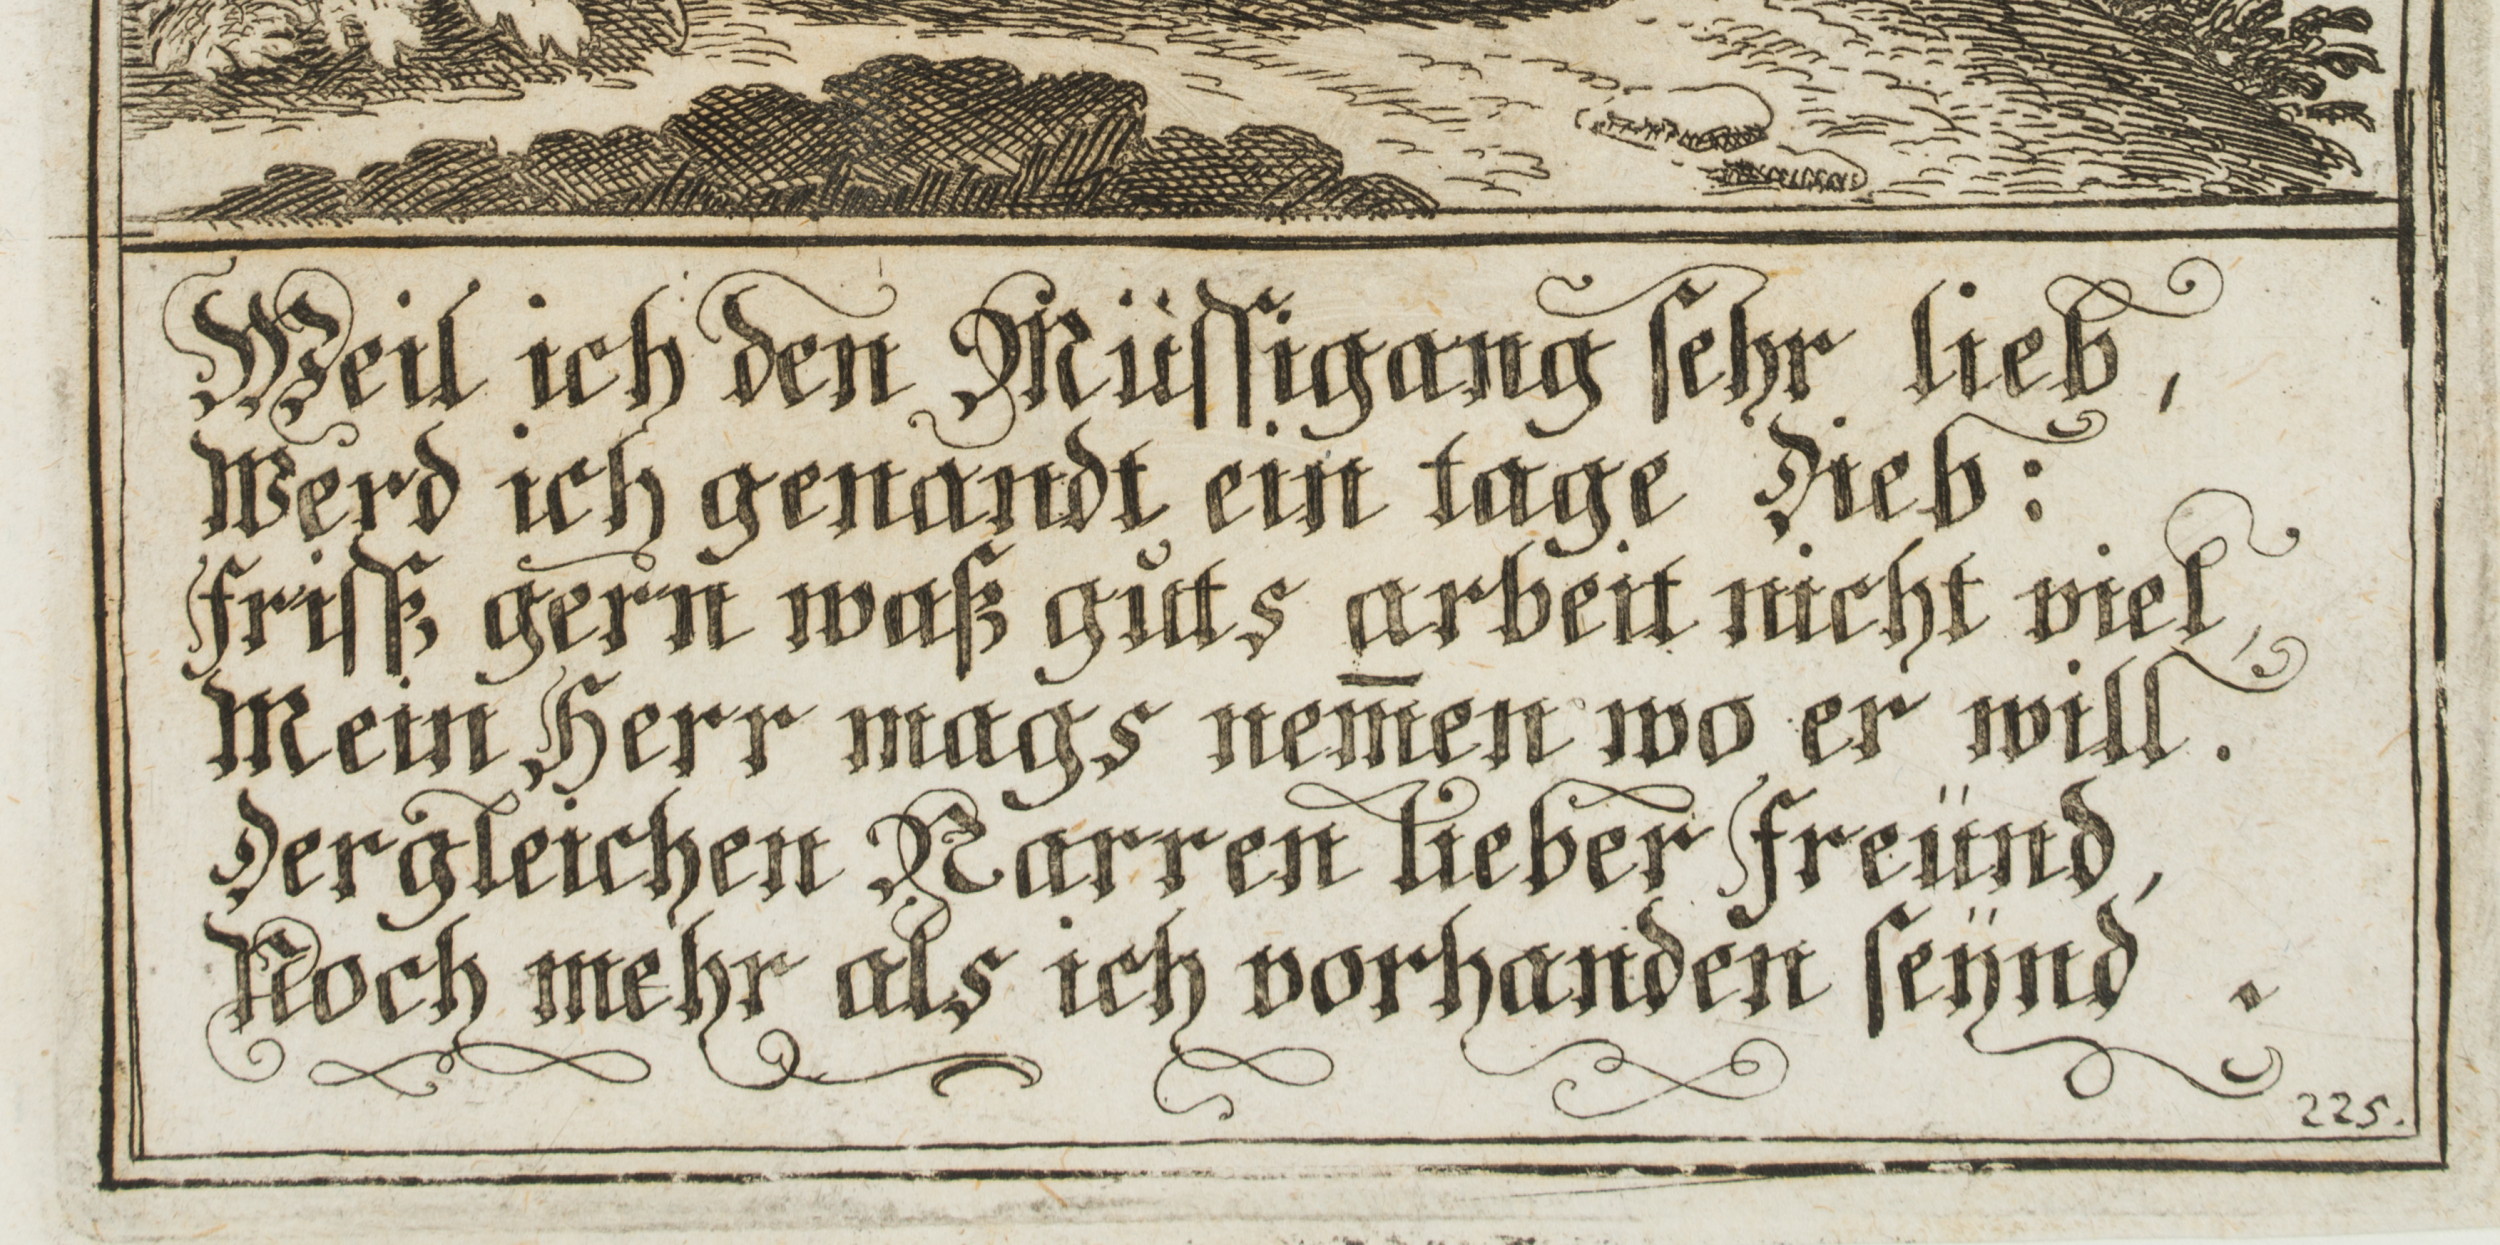 Weil ich den Müssigang sehr lieb,
Werd ich genandt ein tage Dieb:
frisß gern waß guts arbeit nicht viel,
Mein Herr mags nem̅en wo er will.
Dergleichen Narren lieber freünd,
Noch mehr als ich vorhanden seÿnd.
225.